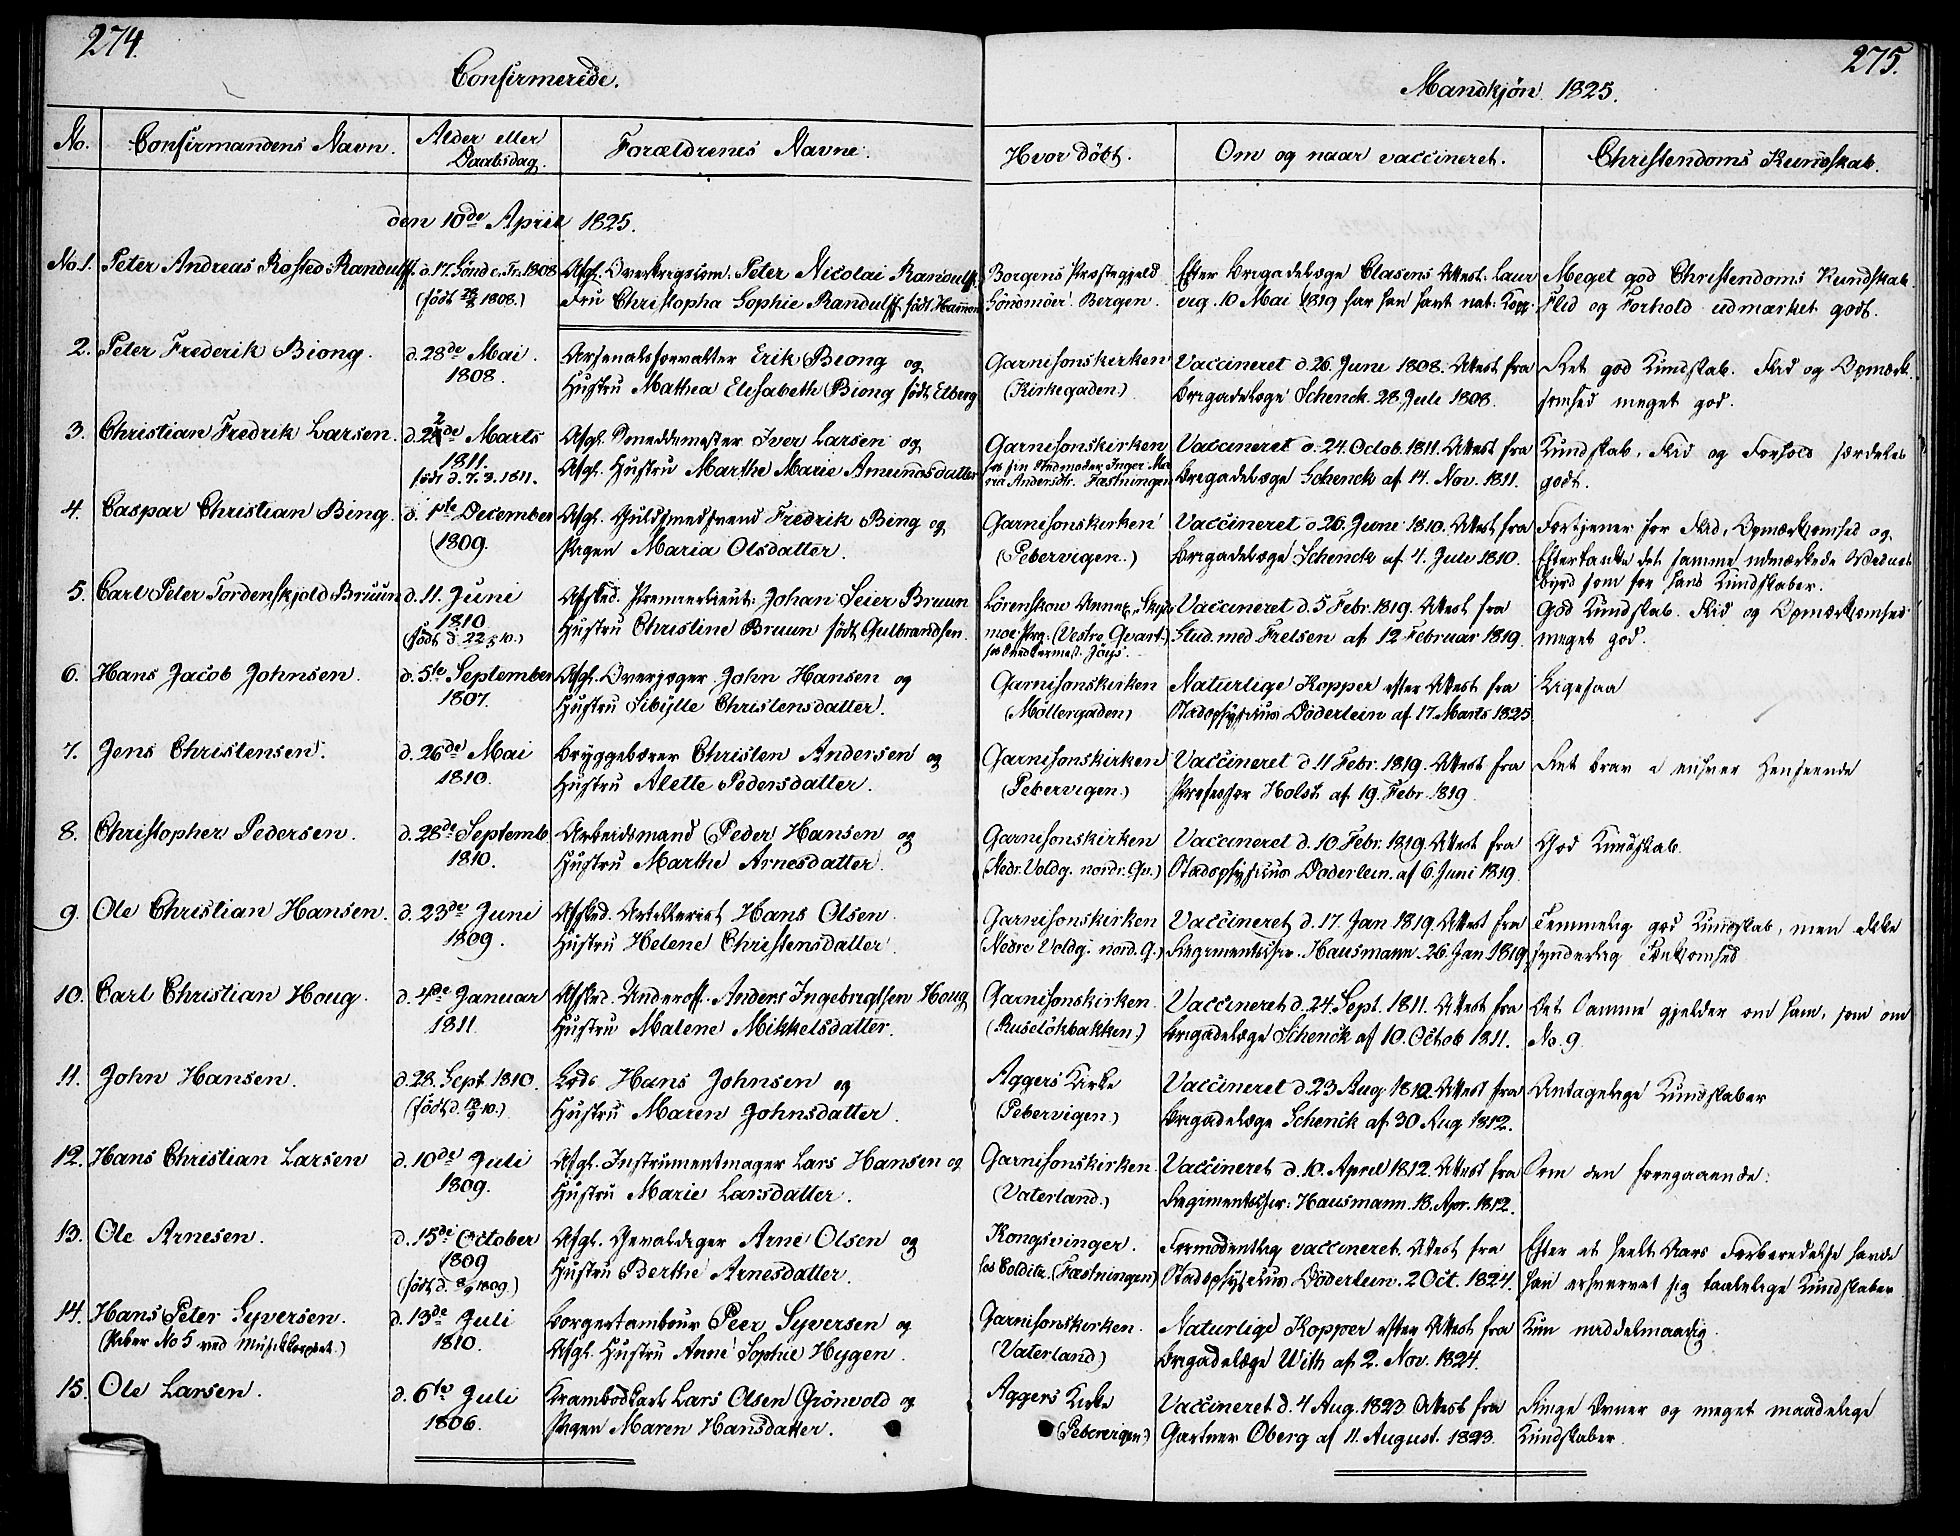 274.
Confirmerede.
No. Confirmandens Navn. Alder eller Daabsdag. Forældrenes Navne.
den 10de April 1825.
No. 1. Peter Andreas Rosted Randulff. d. 17. Sønd. e. Tr. 1808 Afgl. Overkrigscom. Peter Nicolai Randulff.
(født 28/8 1808.) Fru Christopha Sophie Randulff født Hammon
2. Peter Frederik Biong. d. 28de Mai. Arsenalsforvalter Erik Biong og
1808. Hustru Mathea Elisabeth Biong født Elberg
3. Christian Fredrik Larsen. d. 22de Marts Afgl. Smeddemester Iver Larsen og
1811. Afgl. Hustru Marthe Marie Amundsdatter
født d. 7. 3. 1811.
4. Caspar Christian Bing. d. 1ste December Afgl. Guldsmedsvend Fredrik Bing og
1809. Pigen Maria Olsdatter.
5. Carl Peter Tordenskjold Bruun d. 11. Juni Afsked. Premierlieut. Johan Seier Bruun
1810 Hustru Christine Bruun født Gulbrandsen.
(født d. 22/5 10.)
6. Hans Jacob Johnsen. d. 5te September Afgl. Overjæger John Hansen og
1807. Hustru Sibylle Christensdatter.
7. Jens Christensen. d. 26de Mai Bryggebærer Christen Andersen og
1810. Hustru Alette Pedersdatter.
8. Christopher Pedersen. d. 28de Septemb. Arbeidsmand Peder Hansen og
1810. Hustru Marthe Arnesdatter.
9. Ole Christian Hansen. d. 23de Juni Afsked. Artillerist Hans Olsen.
1809. Hustru Helene Christensdatter.
10. Carl Christian Houg. d. 4de Januar Afsked. Underoff. Anders Ingebregtsen Houg
1811. Hustru Malene Mikkelsdatter.
11. John Hansen. d. 28. Sept. 1810. Lods Hans Johnsen og
(født d. 19/9 10.) Hustru Maren Johnsdatter.
12. Hans Christian Larsen d. 10de Juli Afgl. Instrumentmager Lars Hansen og
1809. Hustru Marie Larsdatter.
13. Ole Arnesen. d. 15de October Afgl. Gevaldiger Arne Olsen og
1809 Hustru Berthe Arnesdatter.
(født d. 8/9 1809.)
14. Hans Peter Syversen. d. 13de Juli Borgertambour Peer Syversen og
(Staber No 5 ved Musikkorpset.) 1810. Afgl. Hustru Anne Sophie Hygen.
15. Ole Larsen. d. 6te Juli Krambodkarl Lars Olsen Grønvold og
1806. Pigen Maren Hansdatter.
275.
Mandkjøn 1825.
Hvor døbt. Om og naar vaccineret. Christendoms Kundskab.
Borgens Præstegjeld Efter Brigadelæge Clasens Attest: Laur Meget god Christendoms Kundskab.
Søndmøer Bergen. 10 Mai 1819 har han havt nat: Kopp. Flid og Forhold udmærket godt.
Garnisonskirken Vaccineret d. 26. Juni 1808. Attest fra Ret god Kundskab. Flid og Opmærk-
(Kirkegaden) Brigadelæge Schenck. 28 Juli 1808. somhed meget god.
Garnisonskirken Vaccineret d. 24. Octob. 1811. Attest fra Kundskab, Flid og Forhold særdeles
hos sin Stedmoder Inger Ma-
ria Andersdtr. Fæstningen Brigadelæge Schenck af 14. Nov. 1811. godt.
Garnisonskirken Vaccineret d. 26. Juni 1810. Attest fra Fortjener for Flid, Opmærksomhed og
(Pebervigen.) Brigadelæge Schenck af 4. Juli 1810. Eftertanke det samme udmærkede Vidnes-
byrd som for hans Kundskaber.
Lørenskow Annex, Skyds- Vaccineret d. 5 Febr. 1819. Attest fra God Kundskab. Flid og Opmærksomhed
moe Prg: (Vestre Qvart.) Stud. med Frelsen af 12 Februar 1819. meget god.
Garnisonskirken Naturlige Kopper efter Attest fra Ligesaa
(Møllergaden) Stadsphysicus Döderlein af 17. Marts 1825.
Garnisonskirken Vaccineret d. 11 Febr. 1819. Attest fra Ret brav i enhver Henseende
(Pebervigen.) Professor Holst af 19. Febr. 1819.
Garnisonskirken Vaccineret d. 10. Febr. 1819. Attest fra God Kundskab.
(Nedr. Voldg. nordr. Qv.) Stadsphysicus Döderlein. af 6. Juni 1819.
Garnisonskirken Vaccineret d. 17. Jan 1819. Attest fra Temmelig god Kundskab, men ikke
(Nedre Voldg. nord. Q.) Regimentschir. Hausmann. 26. Jan 1819. synderlig Tænksomhed
Garnisonskirken. Vaccineret d. 24. Sept. 1811. Attest fra Det Samme gjelder om ham, som om
(Ruseløkbakken) Brigadelæge Schenck af 10. Octob 1811. No. 9.
Aggers Kirke Vaccineret d. 23 Aug 1812. Attest fra Antagelige Kundskaber
(Pebervigen.) Brigadelæge Schenck af 30 Aug 1812.
Garnisonskirken. Vaccineret d. 10. April 1812. Attest fra Som den foregaaende:
(Vaterland.) Regimentschir: Hausmann. 18. Apr. 1812.
Kongsvinger. Formodentlig vaccineret. Attest fra Efter et heelt Aars Forberedelse havde
hos Colditz. (Fæstningen) Stadsphysicus Döderlein. 2 Oct. 1824. han erhvervet sig taalelige Kundskaber
Garnisonskirken. Naturlige Kopper efter Attest fra Kun middelmaadig.
(Vaterland) Brigadelæge With af 2. Nov. 1824.
Aggers Kirke Vaccineret d. 4 Aug. 1823 Attest fra Ringe Evner og meget maadelige
(Pebervigen) Gartner Øberg af 11. August. 1823. Kundskaber.